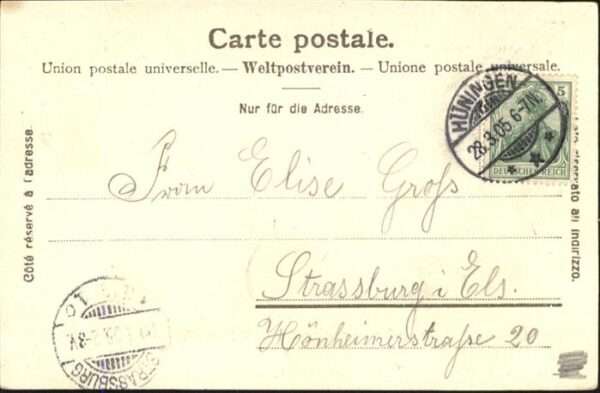 Carte postale.
Union postale universelle. — Weltpostverein. — Unione postale universale.
Nur für die Adresse.
Côté réservé à l'adresse.
HÜNINGEN
28.3.05 6-7N.
5
DEUTSCHES REICH
riservato all' indirizzo.
Frau Elise Groß
Strassburg i Els.
Hönheimerstraße 20
STRASSBURG